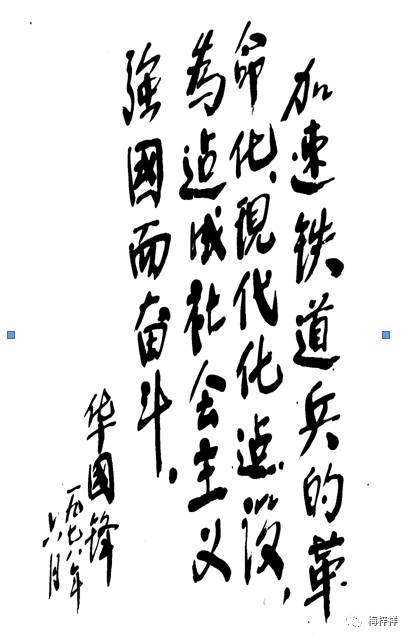 加速铁道兵的革
命化、現代化建设,
為建成社会主义
強國而奋斗.
华國锋
一九七八年
六月
梅梓祥